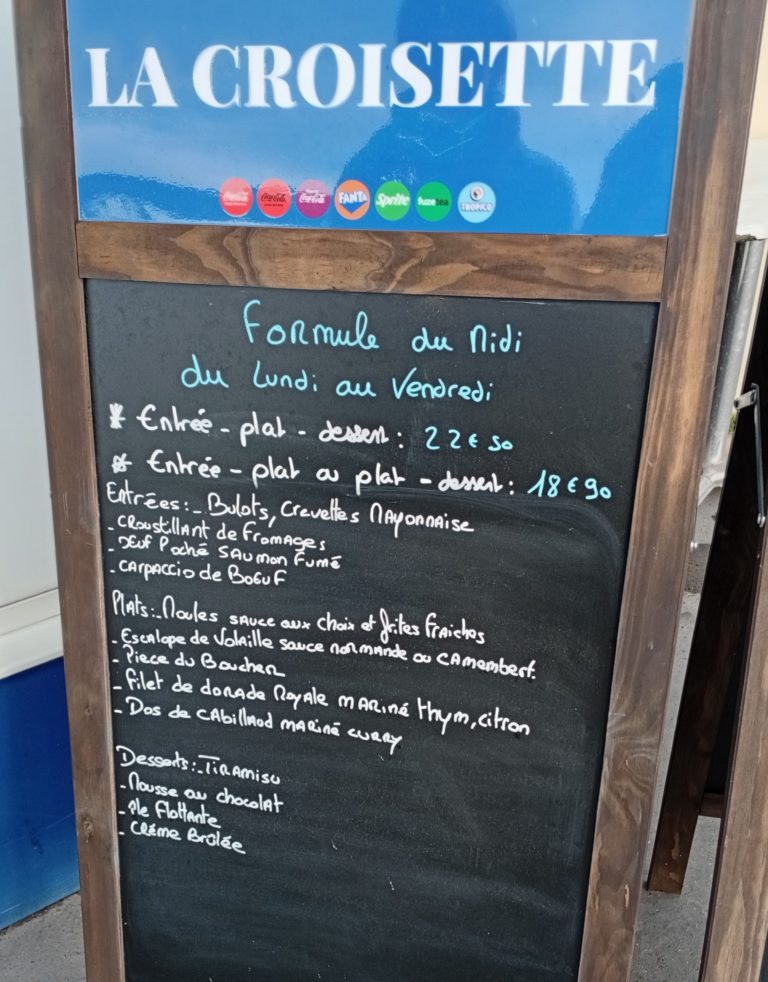 LA CROISETTE
Coca-Cola Coca-Cola Coca-Cola FANTA Sprite fuzetea TROPICO
Formule du Midi
du Lundi au Vendredi
* Entrée - plat - dessert : 22€50
* Entrée - plat ou plat - dessert : 18€90
Entrées : - Bulots, Crevettes Mayonnaise
- Croustillant de Fromages
- Œuf Poché Saumon Fumé
- Carpaccio de Boeuf
Plats : - Moules sauce aux choix et frites Fraiches
- Escalope de Volaille sauce normande ou Camembert.
- Piece du Boucher
- Filet de dorade Royale mariné thym, citron
- Dos de Cabillaud mariné curry
Desserts : - Tiramisu
- Mousse au chocolat
- île Flottante
- Crème Brûlée